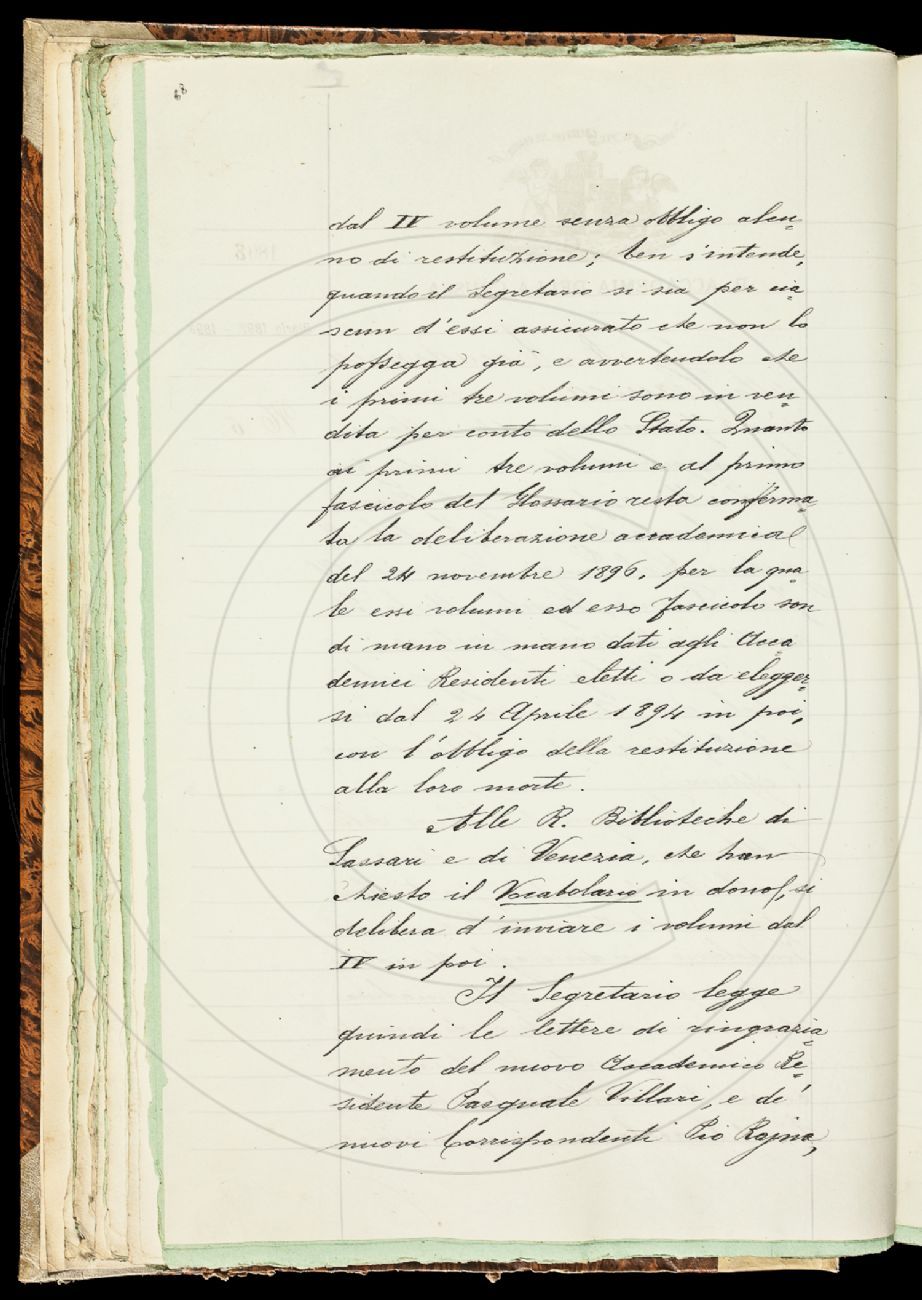 68
dal IV volume senza obbligo alcu-
no di restituzione; ben s'intende,
quando il Segretario si sia per cia-
scun d'essi assicurato che non lo
possegga già, e avvertendolo che
i primi tre volumi sono in ven-
dita per conto dello Stato. Quanto
ai primi tre volumi e al primo
fascicolo del Glossario resta conferma-
ta la deliberazione accademica
del 24 novembre 1896, per la qua-
le essi volumi ed esso fascicolo son
di mano in mano dati agli Acca-
demici Residenti eletti o da elegger-
si dal 24 Aprile 1894 in poi,
con l'obbligo della restituzione
alla loro morte.
Alle R. Biblioteche di
Sassari e di Venezia, che han
chiesto il Vocabolario in dono, si
delibera d'inviare i volumi dal
IV in poi.
Il Segretario legge
quindi le lettere di ringrazia-
mento del nuovo Accademico Re-
sidente Pasquale Villari, e di'
nuovi Corrispondenti Pio Rajna,